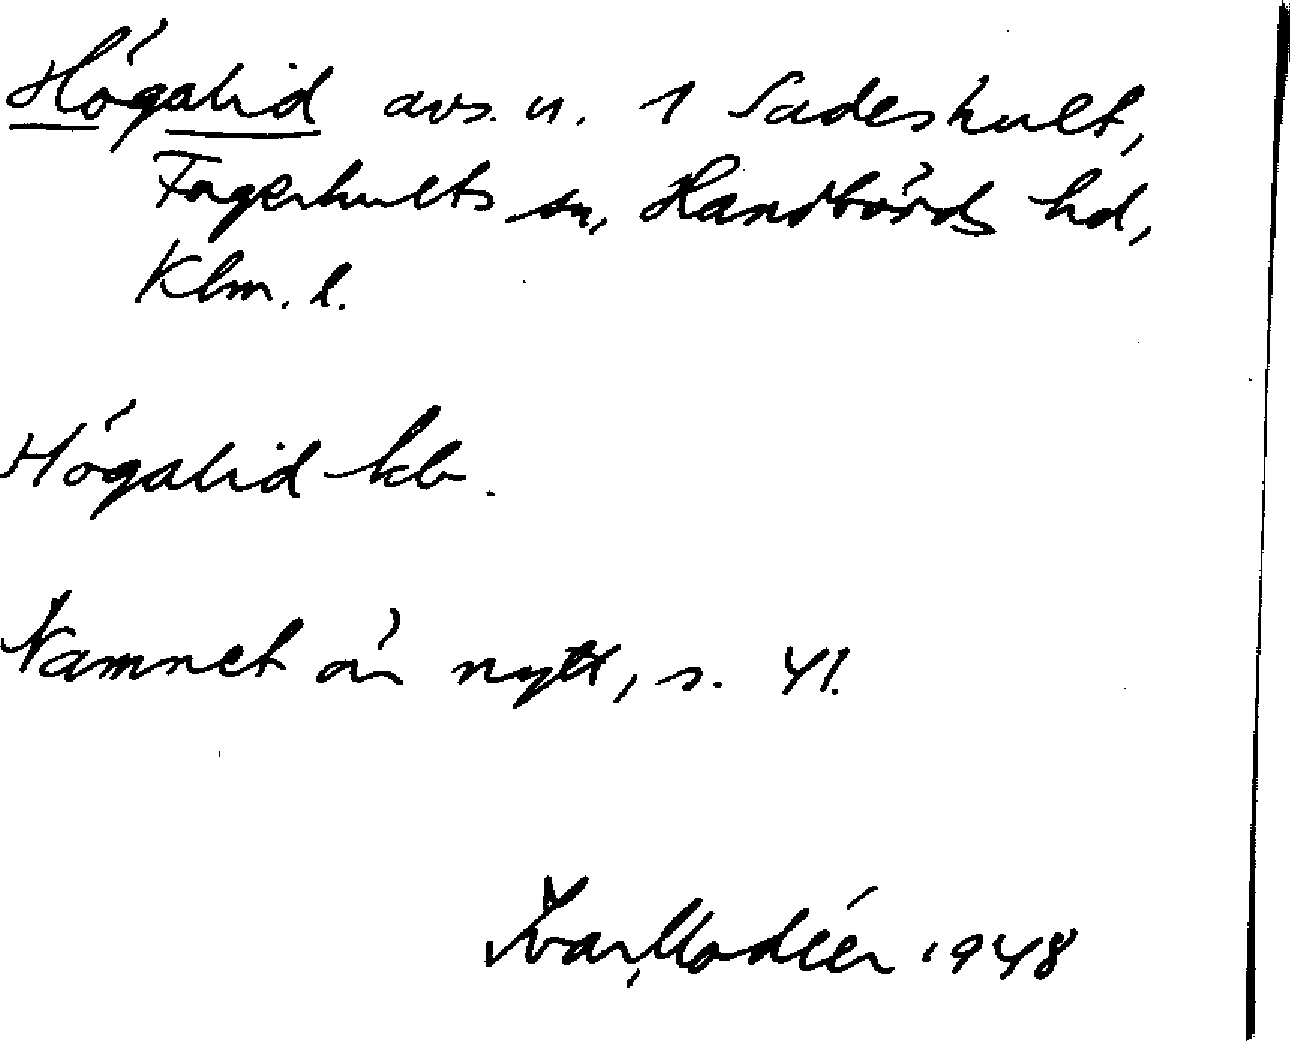 Högalid avs. u. 1 Sadeshult,
Fagerhults sn, Handbörds hd,
Klm. l.
Högalid kb.
Namnet är nytt, s. 41.
Ivar Modéer 1948